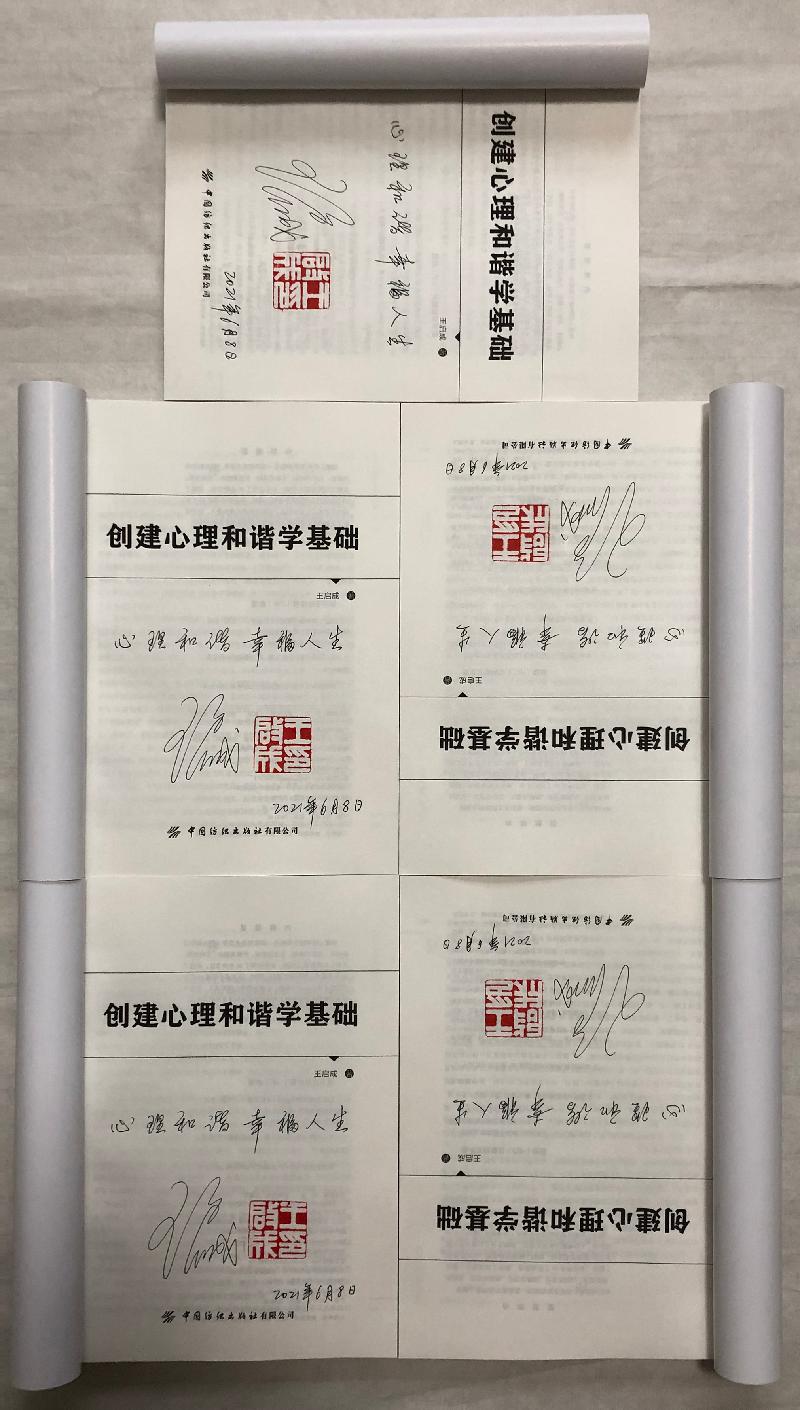 创建心理和谐学基础
王启成
心理和谐 幸福人生
王启成
王印啟成
2021年6月8日
中国纺织出版社有限公司
创建心理和谐学基础
王启成
心理和谐 幸福人生
王启成
王印啟成
2021年6月8日
中国纺织出版社有限公司
创建心理和谐学基础
王启成
心理和谐 幸福人生
王启成
王印啟成
2021年6月8日
中国纺织出版社有限公司
创建心理和谐学基础
王启成
心理和谐 幸福人生
王启成
王印啟成
2021年6月8日
中国纺织出版社有限公司
创建心理和谐学基础
王启成
心理和谐 幸福人生
王启成
王印啟成
2021年6月8日
中国纺织出版社有限公司